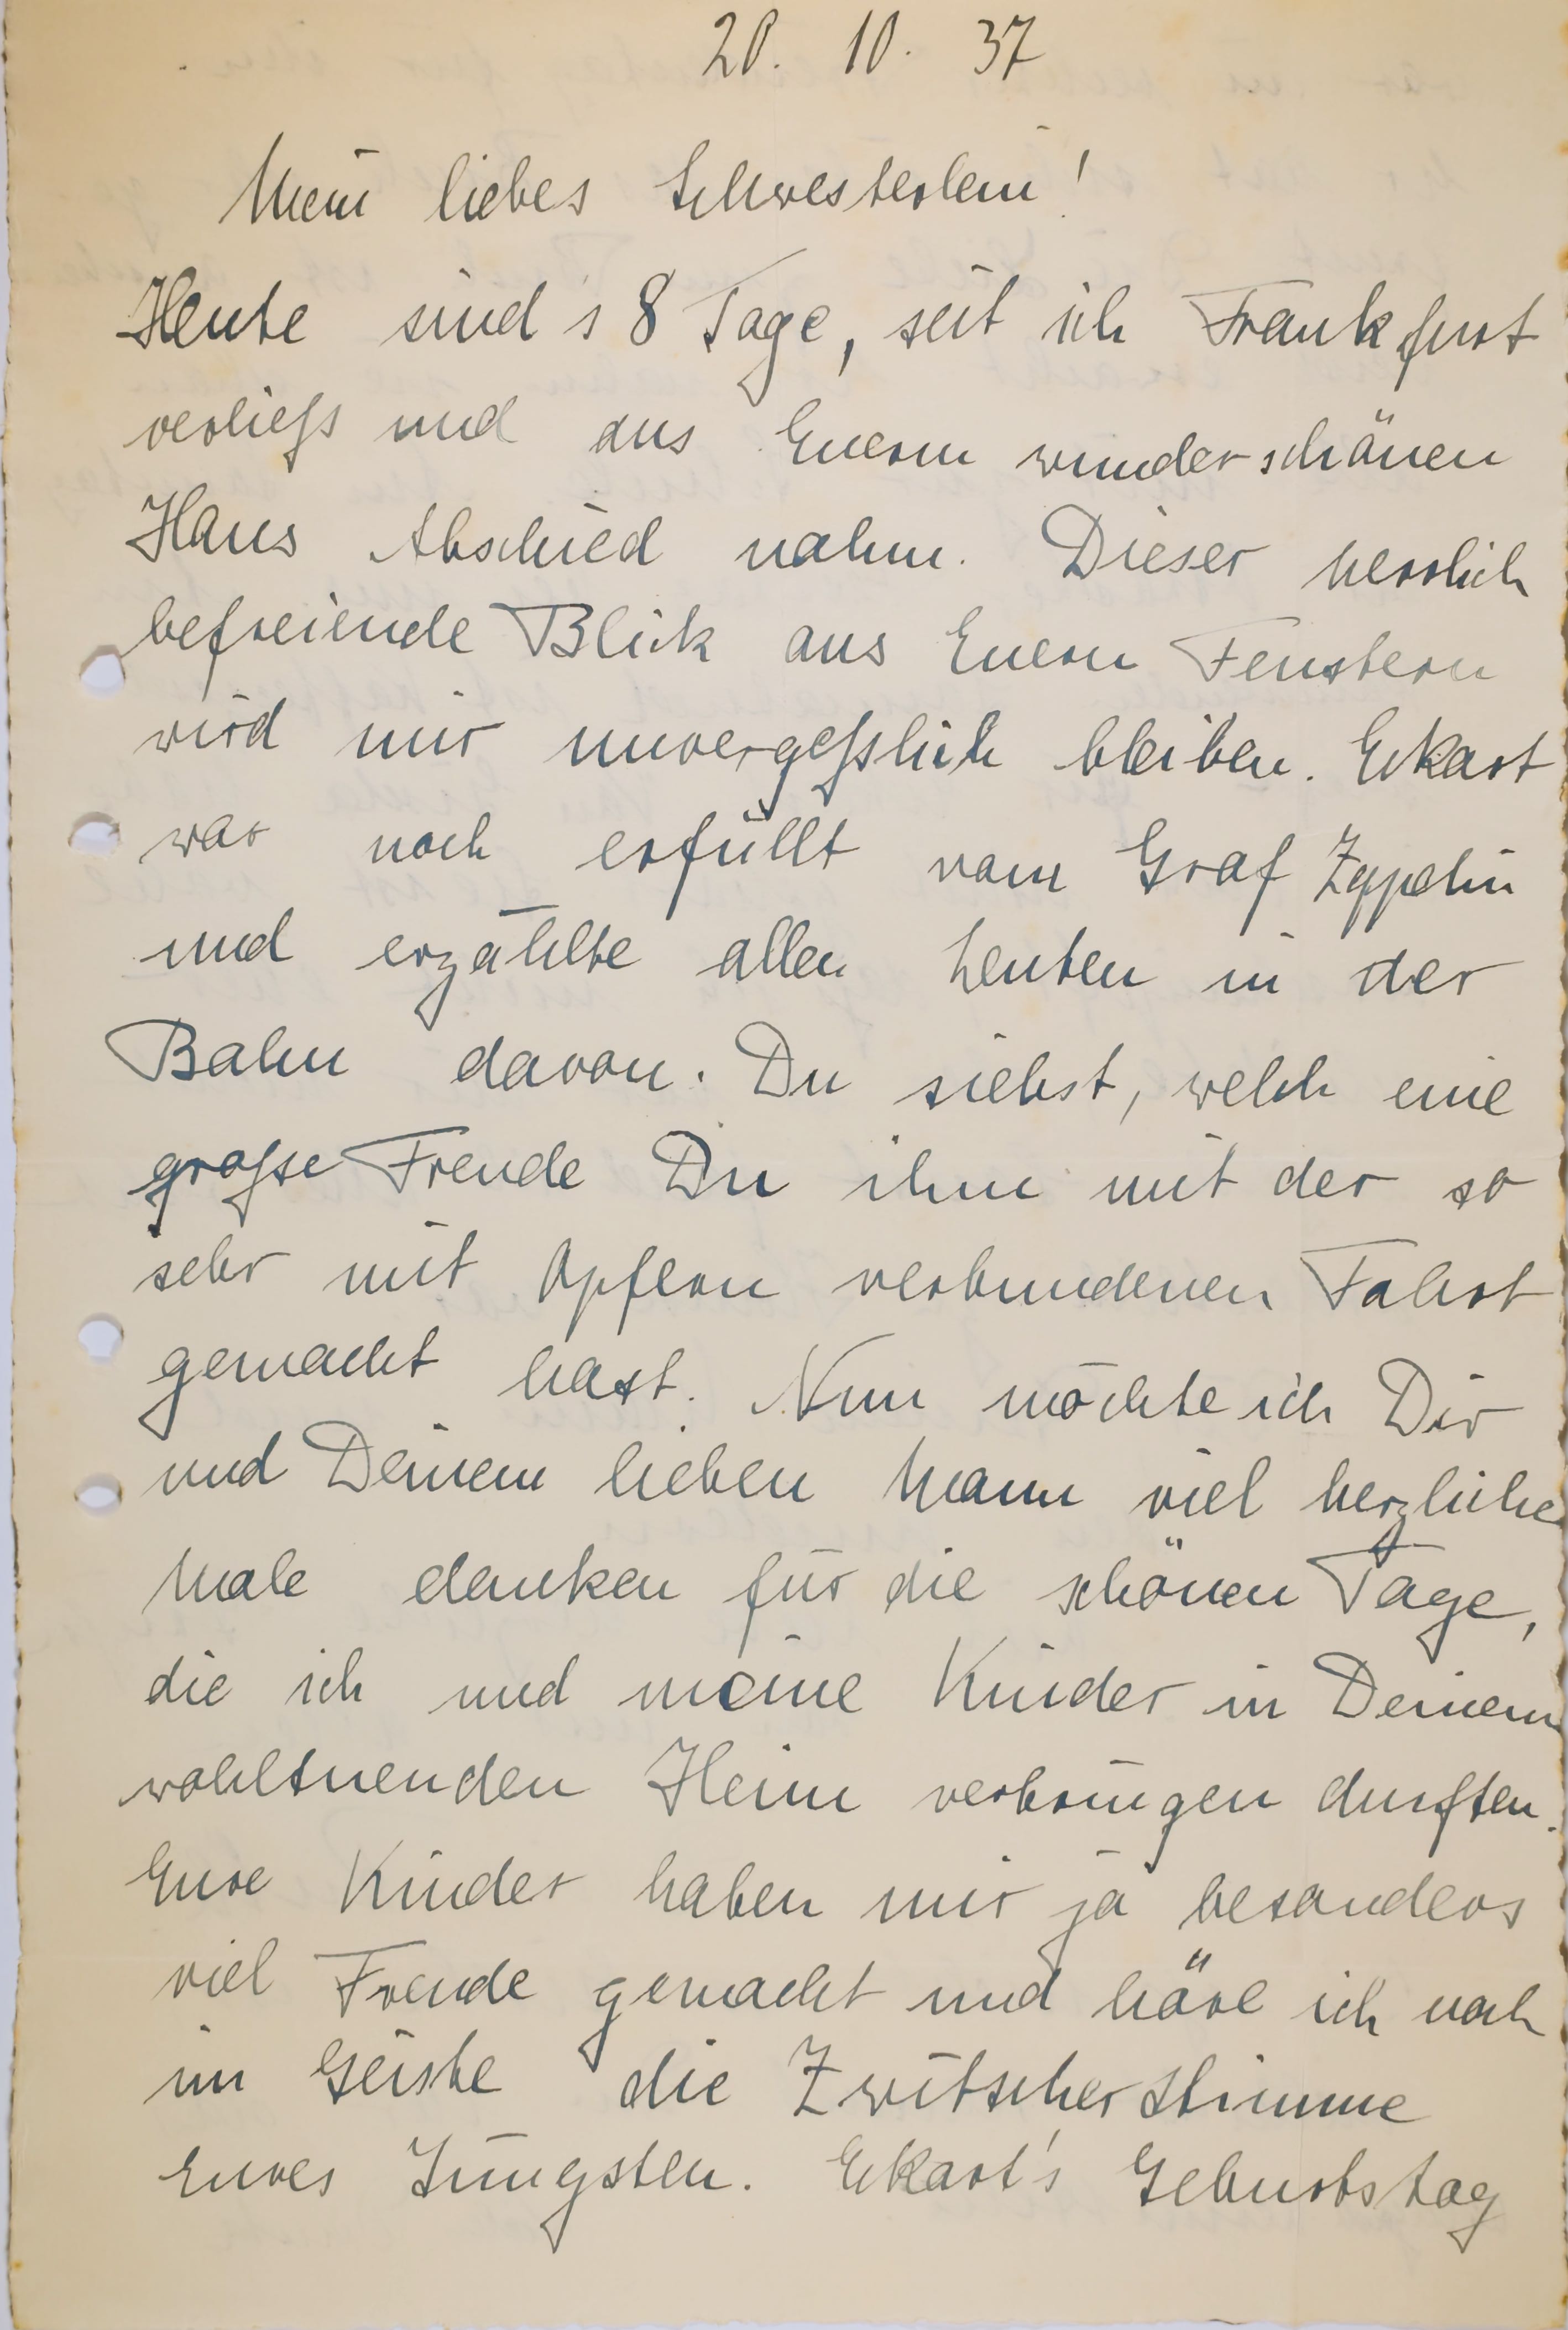 20. 10. 37
Mein liebes Schwesterlein!
Heute sind's 8 Tage, seit ich Frankfurt
verließ und aus Euerm wunderschönen
Haus Abschied nahm. Dieser herrlich
befreiende Blick aus Euern Fenstern
wird mir unvergeßlich bleiben. Eckart
war noch erfüllt vom Graf Zeppelin
und erzählte allen Leuten in der
Bahn davon. Du siehst, welch eine
große Freude Du ihm mit der so
sehr mit Opfern verbundenen Fahrt
gemacht hast. Nun möchte ich Dir
und Deinem lieben Mann viel herzliche
Male danken für die schönen Tage,
die ich und meine Kinder in Deinem
wohltuenden Heim verbringen durften.
Eure Kinder haben mir ja besonders
viel Freude gemacht und höre ich noch
im Geiste die Zwitscherstimme
Eures Jüngsten. Eckart's Geburtstag